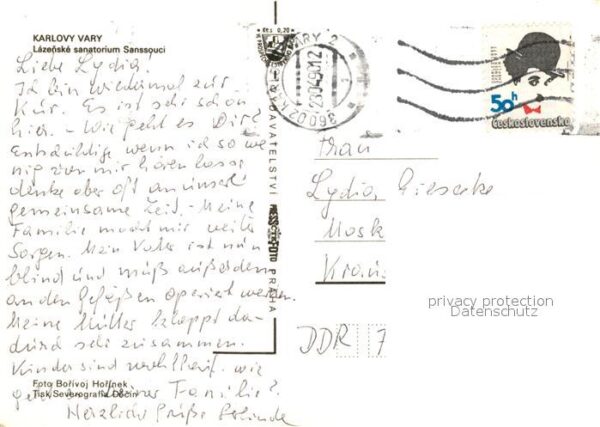 KARLOVY VARY
Lázeňské sanatorium Sanssouci
Liebe Lydia!
Ich bin wiedermal zur
Kur. Es ist sehr schön
hier. - Wie geht es Dir?
Entschuldige wenn ich so we
nig von mir hören lasse
denke aber oft an unsere
gemeinsame Zeit. - Meine
Familie macht mir weiter
Sorgen. Mein Vater ist nun
blind und muß außerdem
an den Gefäßen operiert werden.
Meine Mutter klappt da-
durch sehr zusammen.
Kinder sind wie
Foto Bořivoj Hořínek
geht Deiner Familie?
Tisk Severografia Děčín
Herzliche Grüße
VYDAVATELSTVÍ
PRESSFOTO
PRAHA
0,20
VARY 2
36002
50h
Československo
Frau
Lydia Giescke
Mosk
Kran
privacy protection
Datenschutz
DDR 7